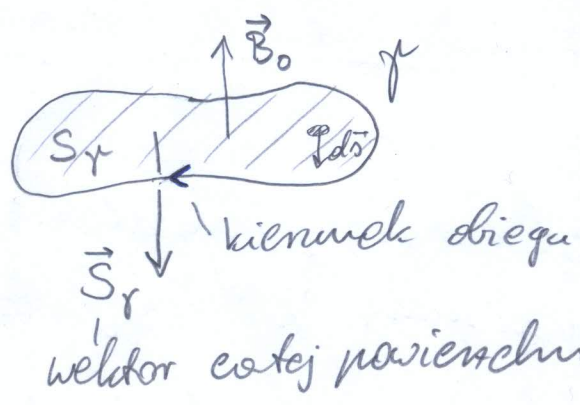 B⃗₀
γ
Sγ ds⃗
kierunek obiegu
S⃗γ
wektor całej powierzchn